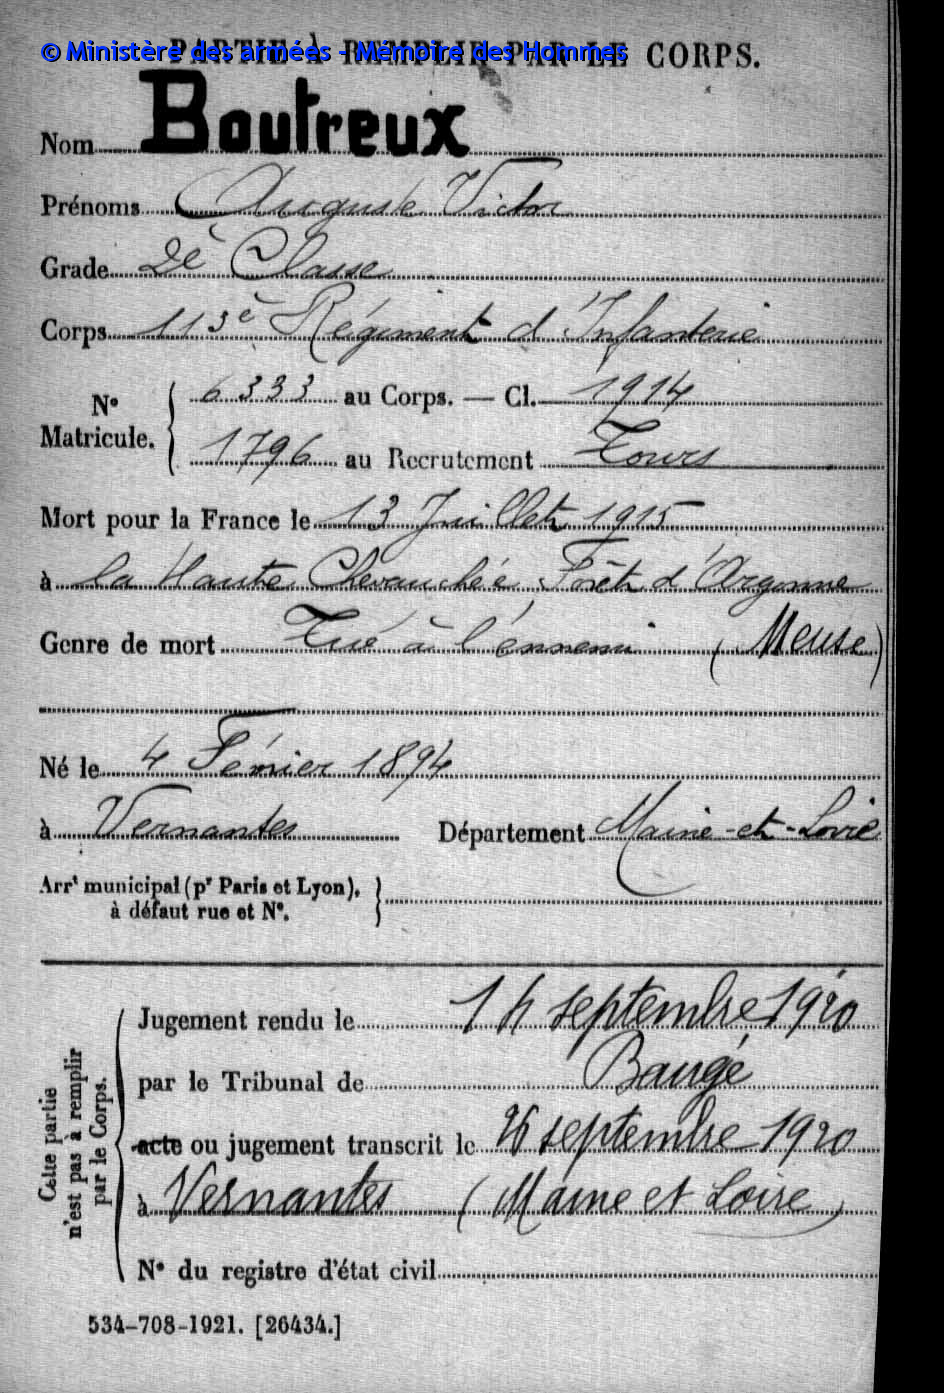 PARTIE À REMPLIR PAR LE CORPS.
© Ministère des armées - Mémoire des Hommes
Nom Boutreux
Prénoms Auguste Victor
Grade 2è Classe
Corps 113è Régiment d'Infanterie
N° Matricule. { 6333 au Corps. — Cl. 1914
1796 au Recrutement Tours
Mort pour la France le 13 Juillet 1915
à la Haute Chevauchée Forêt d'Argonne
Genre de mort Tué à l'ennemi (Meuse)
Né le 4 Février 1894
à Vernantes Département Maine-et-Loire
Arrt municipal (pr Paris et Lyon), à défaut rue et N°. }
Cette partie n'est pas à remplir par le Corps.
Jugement rendu le septembre 1920
par le Tribunal de Baugé
acte ou jugement transcrit le 26 septembre 1920
à Vernantes (Maine et Loire)
N° du registre d'état civil
534-708-1921. [26434.]